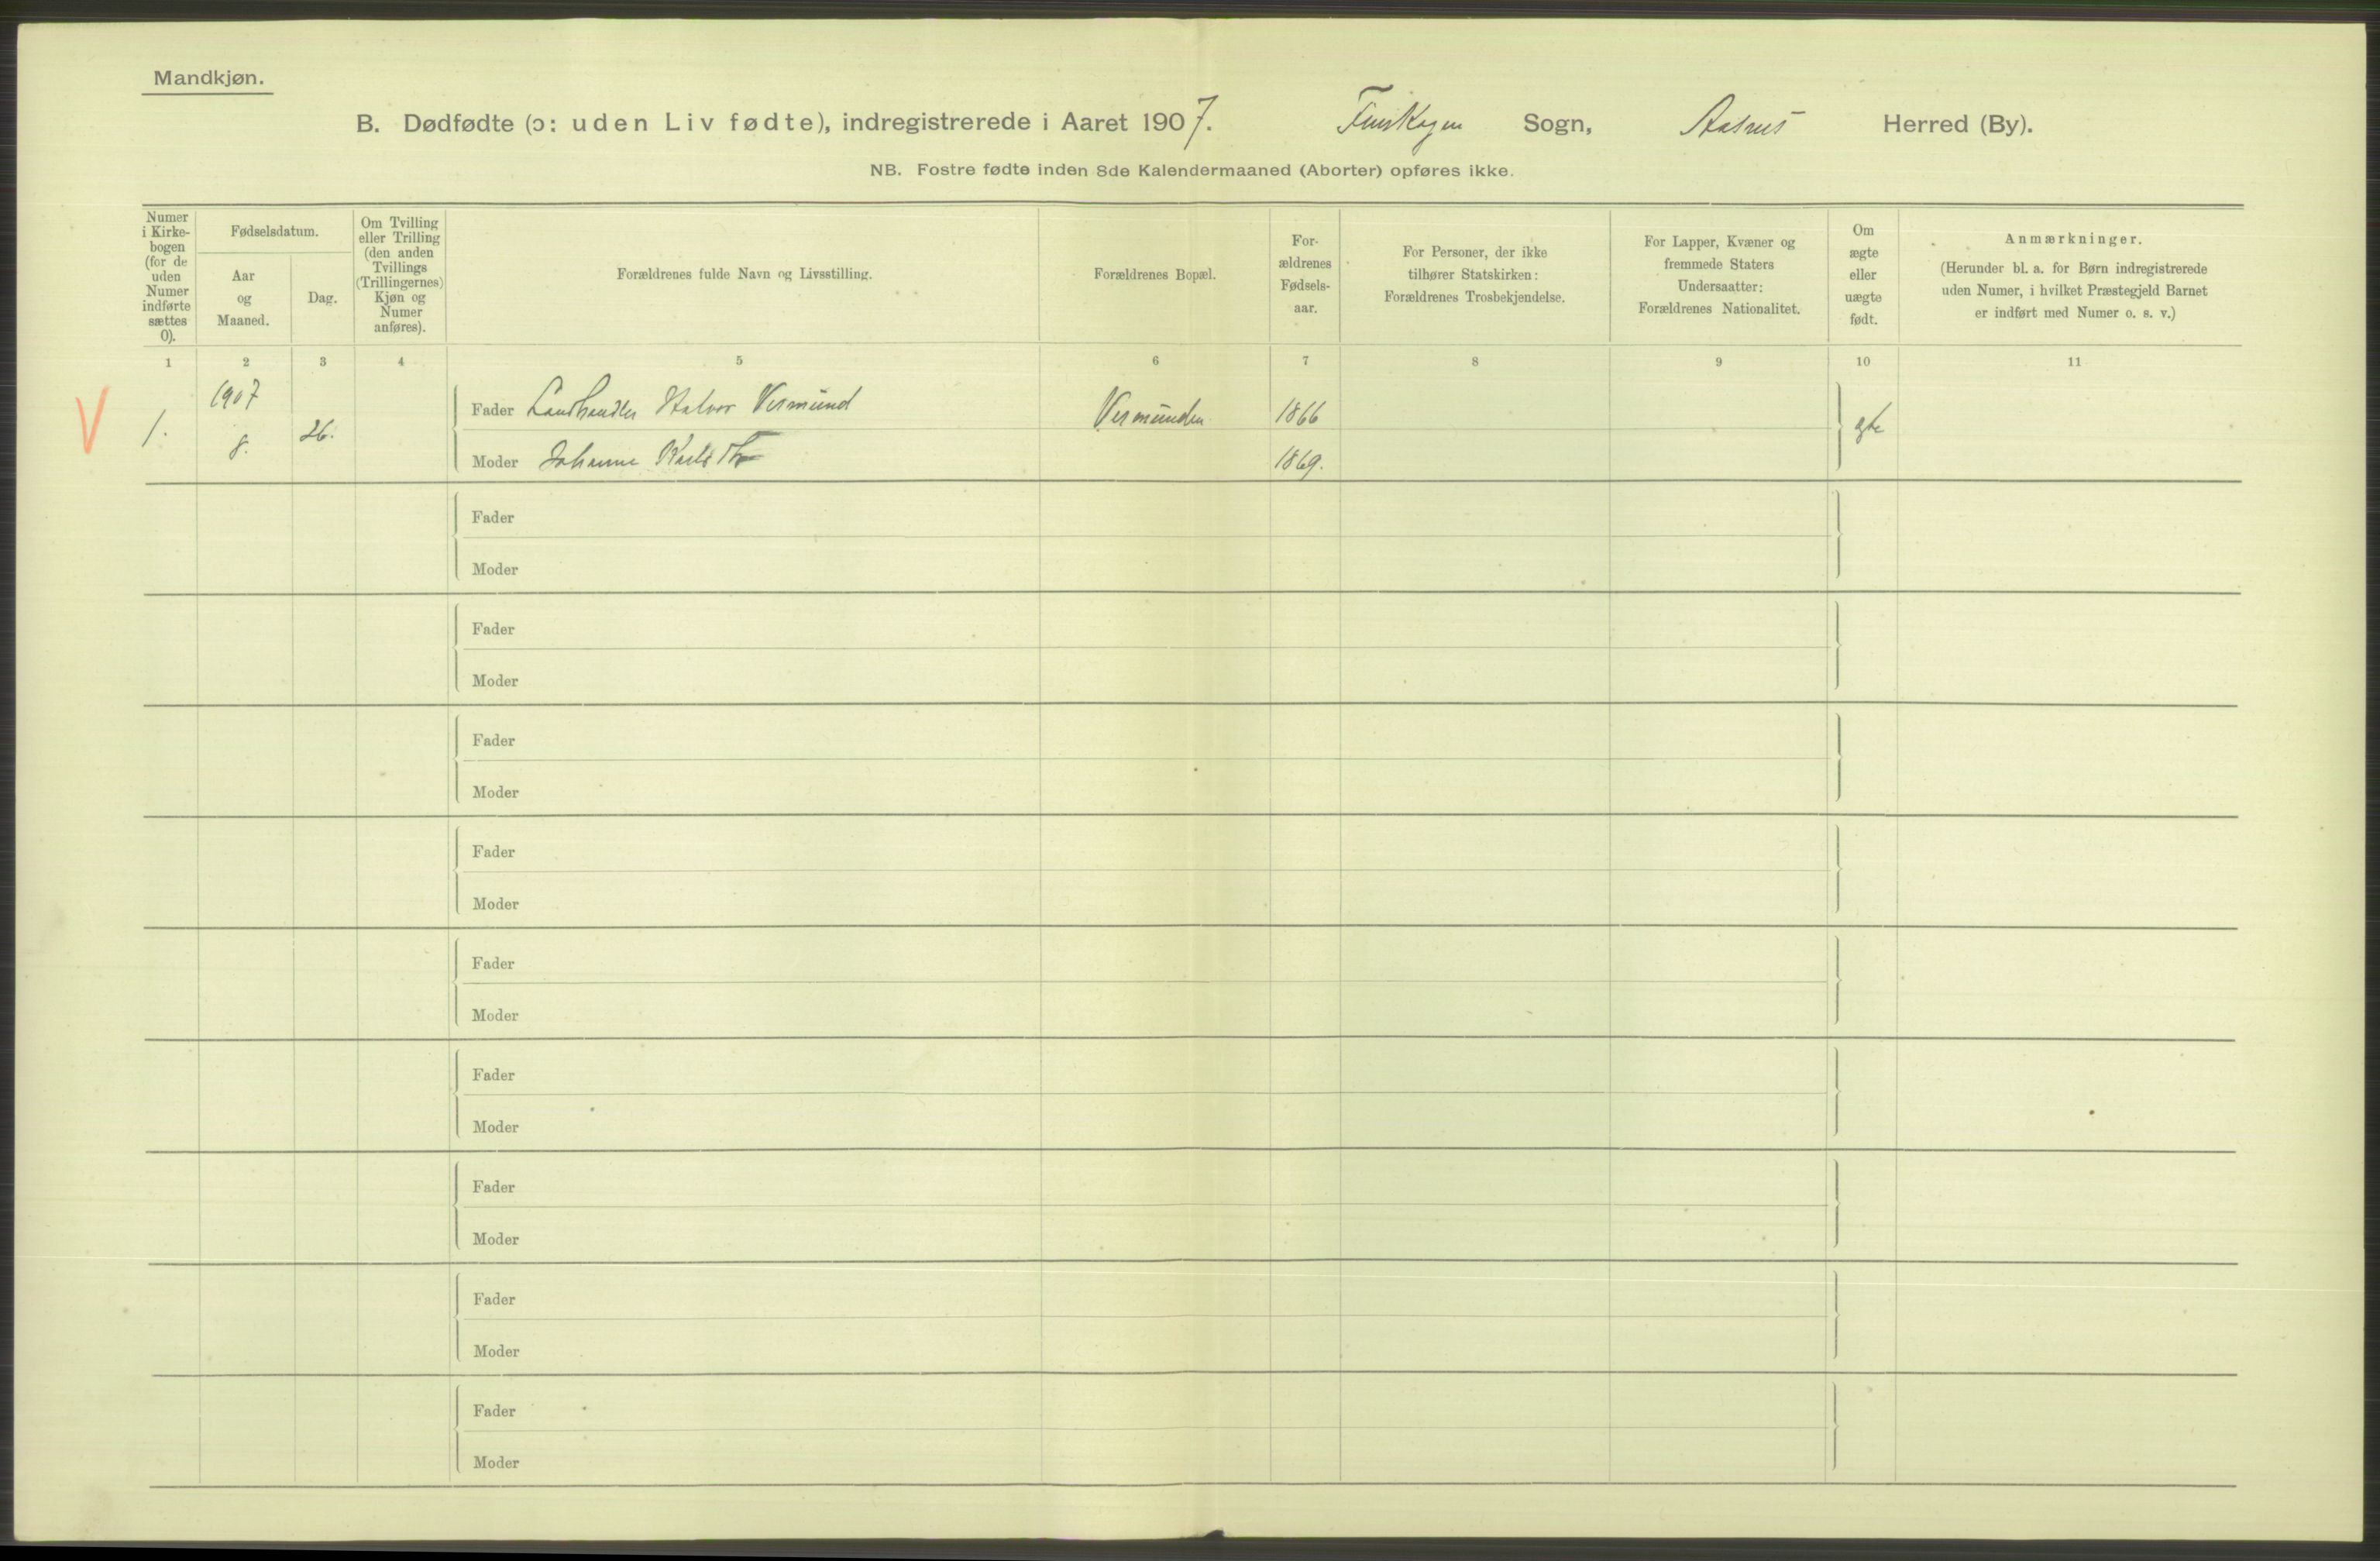 Mandkjøn.
B. Dødfødte (ɔ: uden Liv fødte), indregistrerede i Aaret 1907. Finskogen Sogn, Aasnes Herred (By).
NB. Fostre fødte inden 8de Kalendermaaned (Aborter) opføres ikke.
Numer
i Kirke-
bogen
(for de
uden
Numer
indførte
sættes
0).
Fødselsdatum.
Aar
og
Maaned.
Dag.
Om Tvilling
eller Trilling
(den anden
Tvillings
(Trillingernes)
Kjøn og
Numer
anføres).
Forældrenes fulde Navn og Livsstilling.
Forældrenes Bopæl.
For-
ældrenes
Fødsels-
aar.
For Personer, der ikke
tilhører Statskirken:
Forældrenes Trosbekjendelse.
For Lapper, Kvæner og
fremmede Staters
Undersaatter:
Forældrenes Nationalitet.
Om
ægte
eller
uægte
født.
Anmærkninger.
(Herunder bl. a. for Børn indregistrerede
uden Numer, i hvilket Præstegjeld Barnet
er indført med Numer o. s. v.)
1 2 3 4 5 6 7 8 9 10 11
V
1.
1907
8.
26.
Fader Landhandler Halvor Vermund
Vermunden
1866
ægte
Moder Johanne
1869.
Fader
Moder
Fader
Moder
Fader
Moder
Fader
Moder
Fader
Moder
Fader
Moder
Fader
Moder
Fader
Moder
Fader
Moder